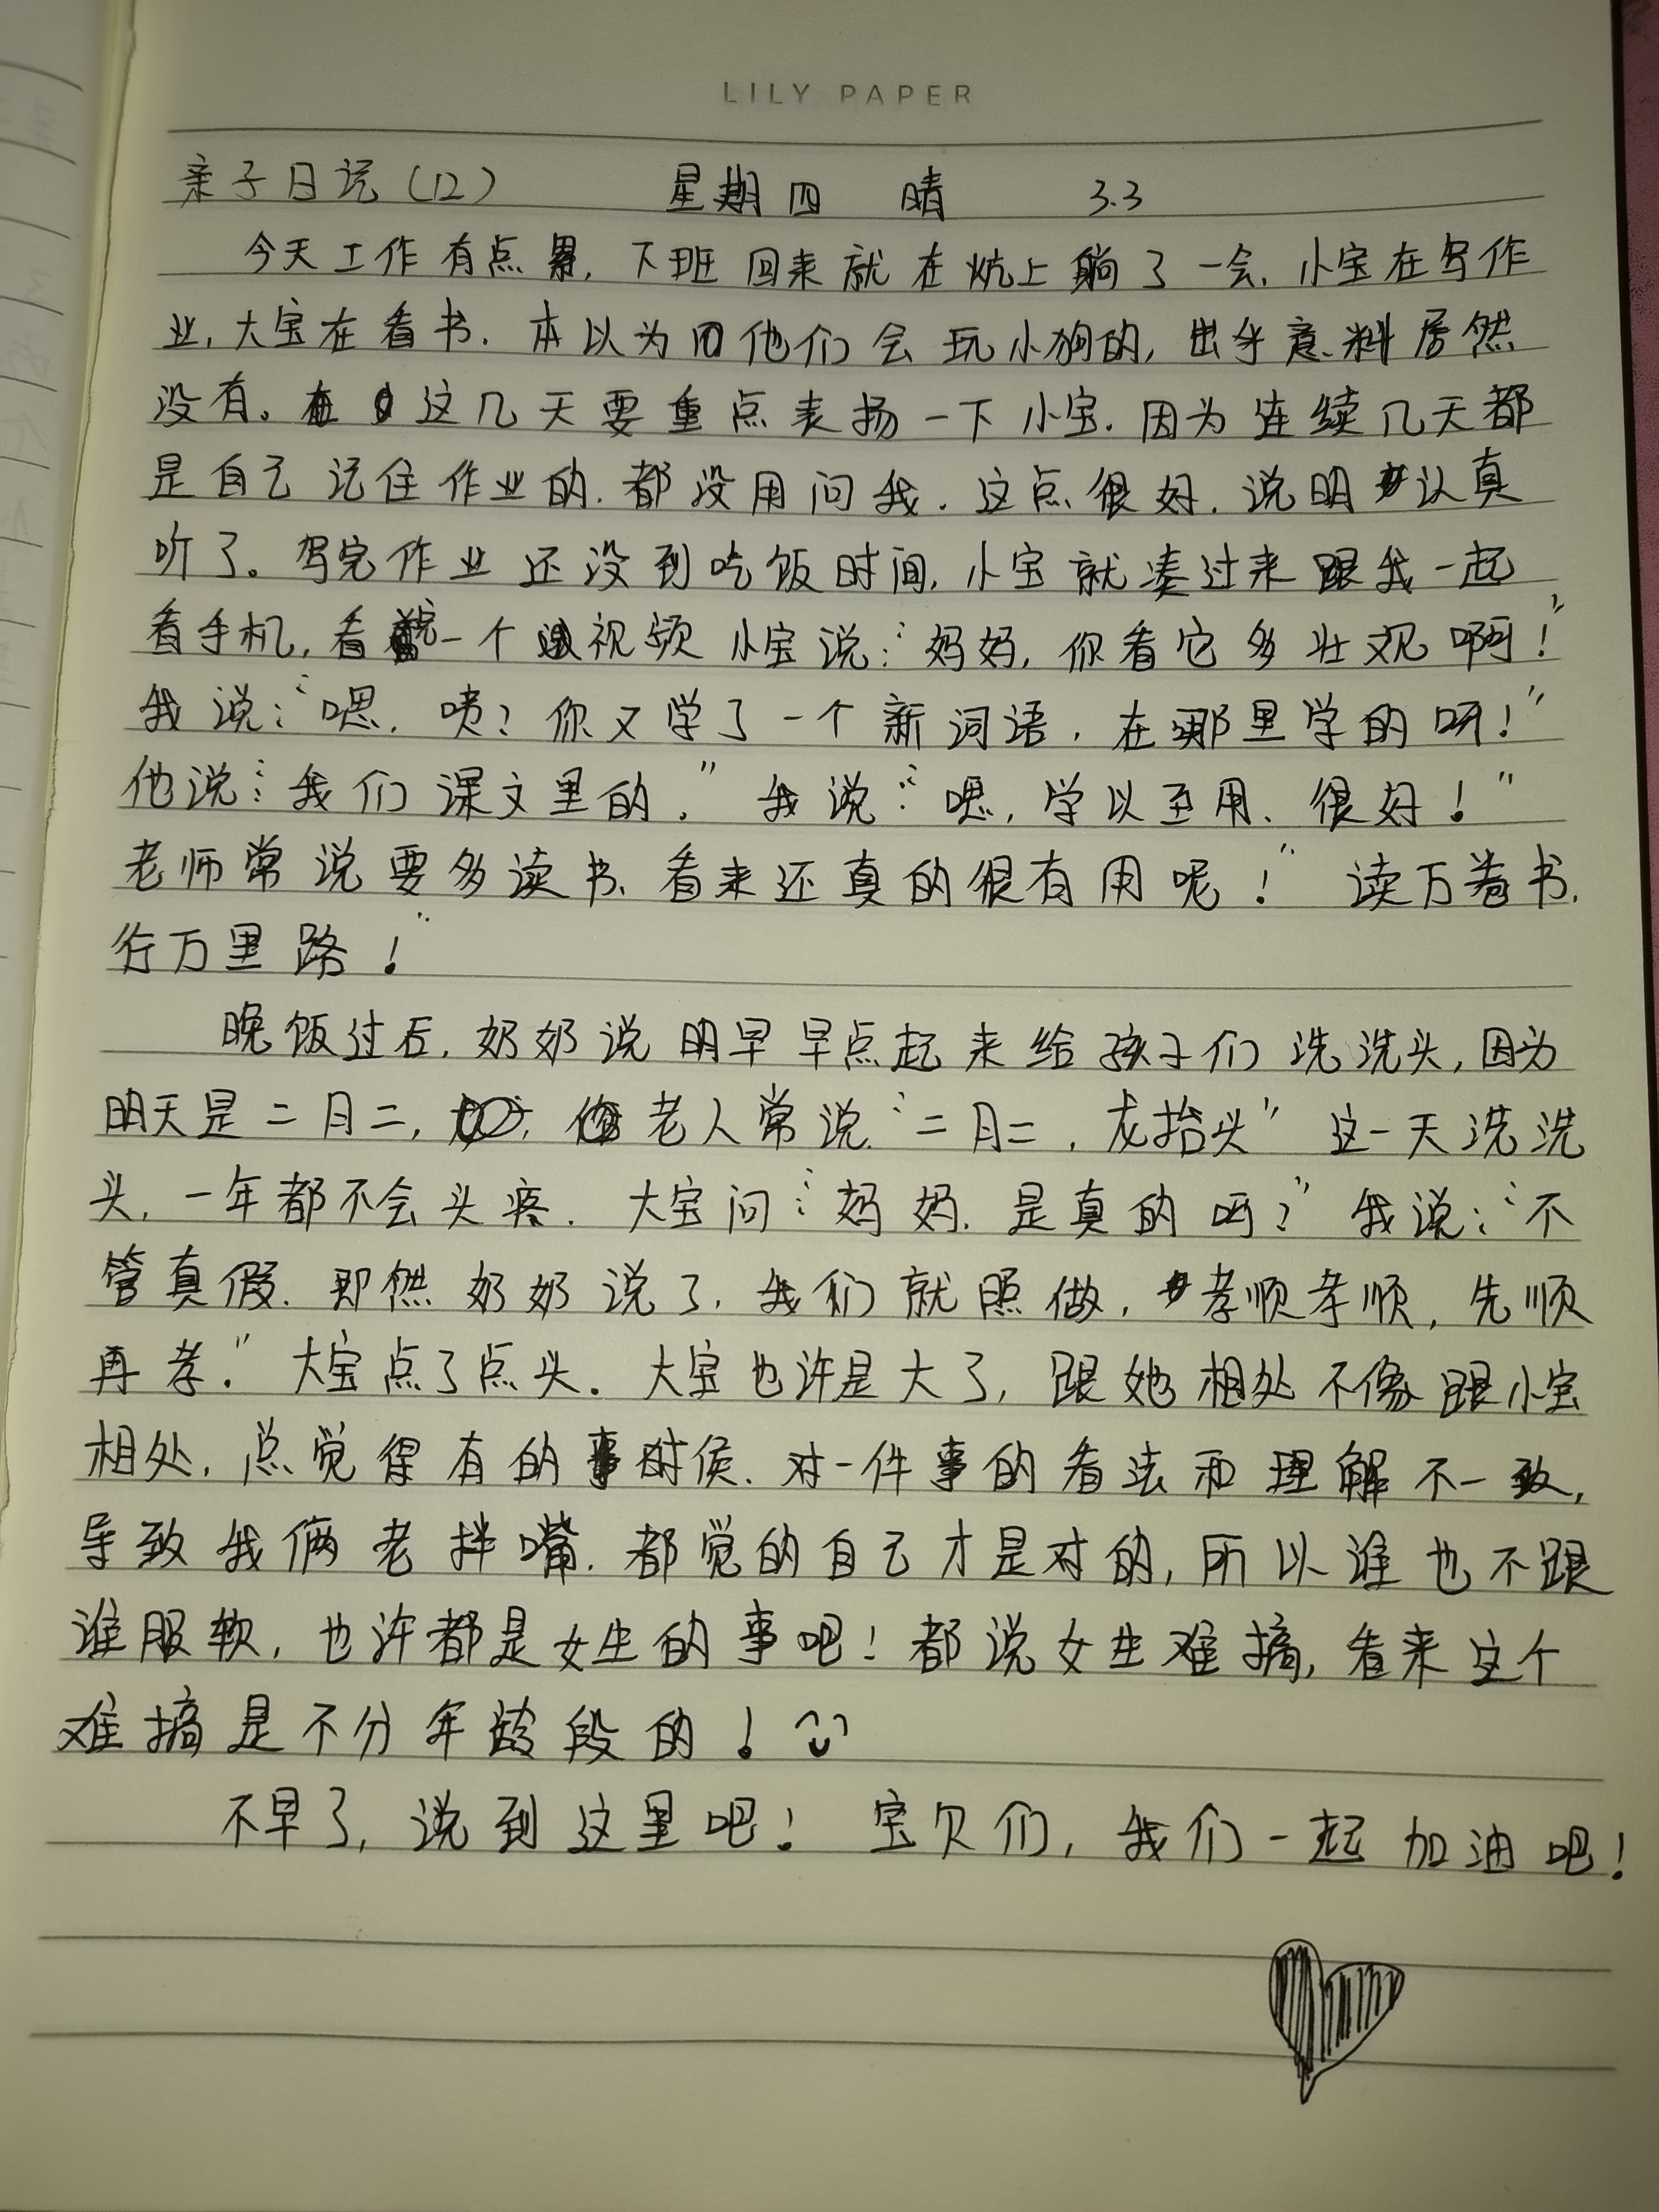 LILY PAPER
亲子日记(12) 星期四 晴 3.3
今天工作有点累，下班回来就在炕上躺了一会，小宝在写作
业，大宝在看书．本以为他们会玩小狗的，出乎意料居然
没有。这几天要重点表扬一下小宝．因为连续几天都
是自己记住作业的．都没用问我．这点很好．说明认真
听了。写完作业还没到吃饭时间，小宝就凑过来跟我一起
看手机，看一个视频 小宝说："妈妈，你看它多壮观啊！"
我说："嗯．唉？你又学了一个新词语，在哪里学的呀！"
他说："我们课文里的．" 我说："嗯，学以至用、很好！"
老师常说要多读书、看来还真的很有用呢！"读万卷书．
行万里路！"
晚饭过后，奶奶说明早早点起来给孩子们洗洗头，因为
明天是二月二，老人常说"二月二，龙抬头"这一天洗洗
头，一年都不会头疼．大宝问："妈妈．是真的吗？"我说："不
管真假．即然奶奶说了，我们就照做，孝顺孝顺，先顺
再孝．"大宝点了点头．大宝也许是大了，跟她相处不像跟小宝
相处，总觉得有的时侯．对一件事的看法和理解不一致，
导致我俩老拌嘴．都觉的自己才是对的，所以谁也不跟
谁服软，也许都是女生的事吧！都说女生难搞，看来这个
难搞是不分年龄段的！
不早了，说到这里吧！宝贝们，我们一起加油吧！